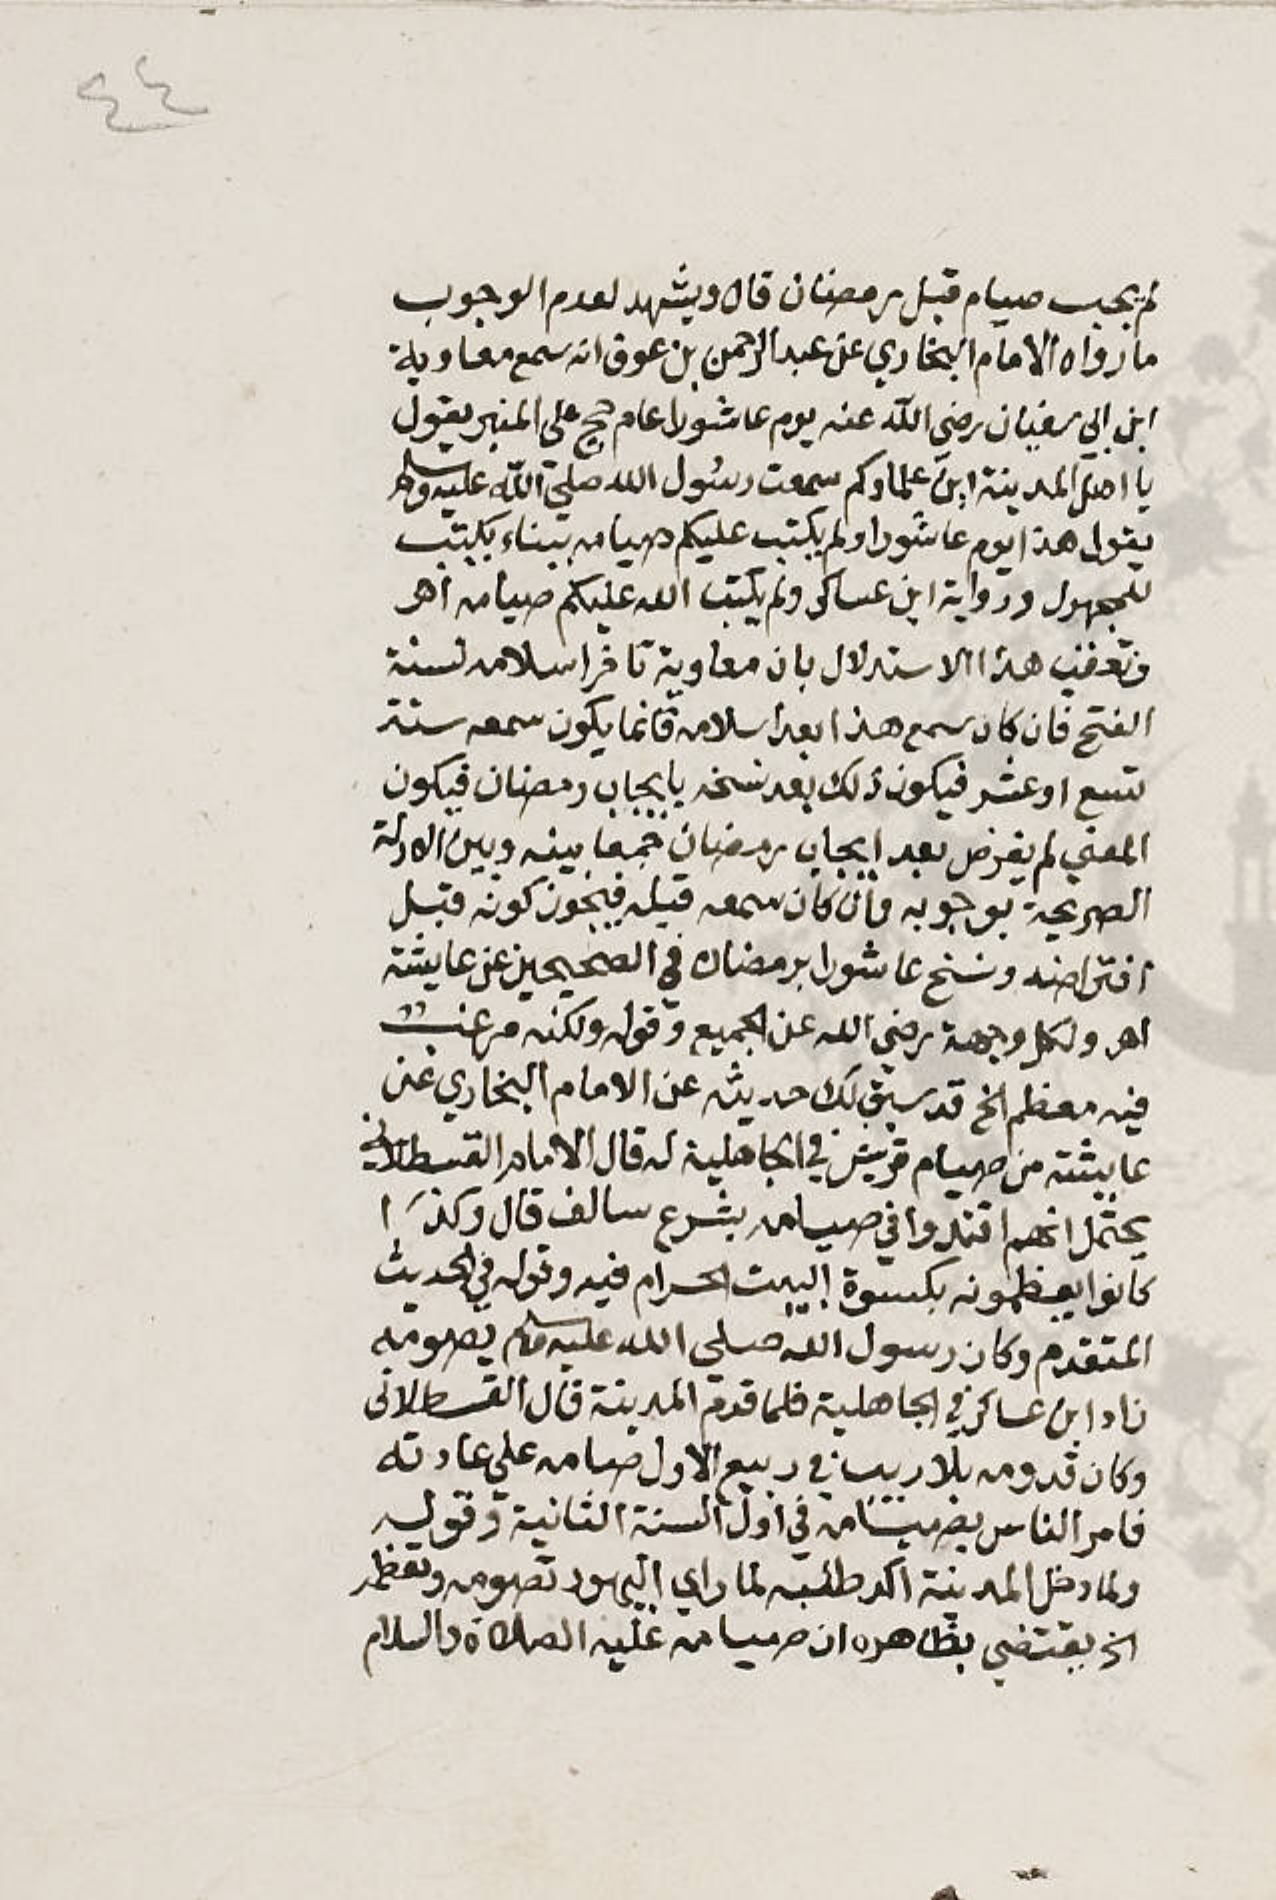 ٤٤
لم يجب صيام قبل رمضان قال ويشهد لعدم الوجوب
ما رواه الامام البخاري عن عبد الرحمن بن عوف انه سمع معاوية
ابن ابي سفيان رضي الله عنه يوم عاشورا عام حج على المنبر يقول
يا اهل المدينة اين علماوكم سمعت رسول الله صلى الله عليه وسلم
يقول هذا يوم عاشورا ولم يكتب عليكم صيامه ببناء يكتب
للمجهول ورواية ابن عساكر ولم يكتب الله عليكم صيامه اهر
وتعقب هذا الاستدلال بان معاوية تاخر اسلامه لسنة
الفتح فان كان سمع هذا بعد اسلامه فانما يكون سمعه سنة
تسع او عشر فيكون ذلك بعد نسخه بايجاب رمضان فيكون
المعني لم يفرض بعد ايجاب رمضان جمعا بينه وبين الادلة
الصريحة بوجوبه وان كان سمعه قبله فيجوز كونه قبل
افتراضه ونسخ عاشورا برمضان في الصحيحين عن عايشة
اهر ولكل وجهة رضي الله عن الجميع وقوله ولكنه مرغب
فيه معظم الخ قد سبق لك حديثه عن الامام البخاري عن
عايشة من صيام قريش في الجاهلية له قال الامام القسطلاني
يحتمل انهم اقتدوا في صيامه بشرع سالف قال وكذا
كانوا يعظمونه بكسوة البيت الحرام فيه وقوله في الحديث
المتقدم وكان رسول الله صلى الله عليه وسلم يصومه
زاد ابن عساكر في الجاهلية فلما قدم المدينة قال القسطلاني
وكان قدومه بلا ريب في ربيع الاول صامه علي عادته
فامر الناس بصيامه في اول السنة الثانية وقوله
ولما دخل المدينة اكد طلبه لما راي اليهود تصومه وتعظمه
الخ يقتضي بظاهره ان صيامه عليه الصلاة والسلام